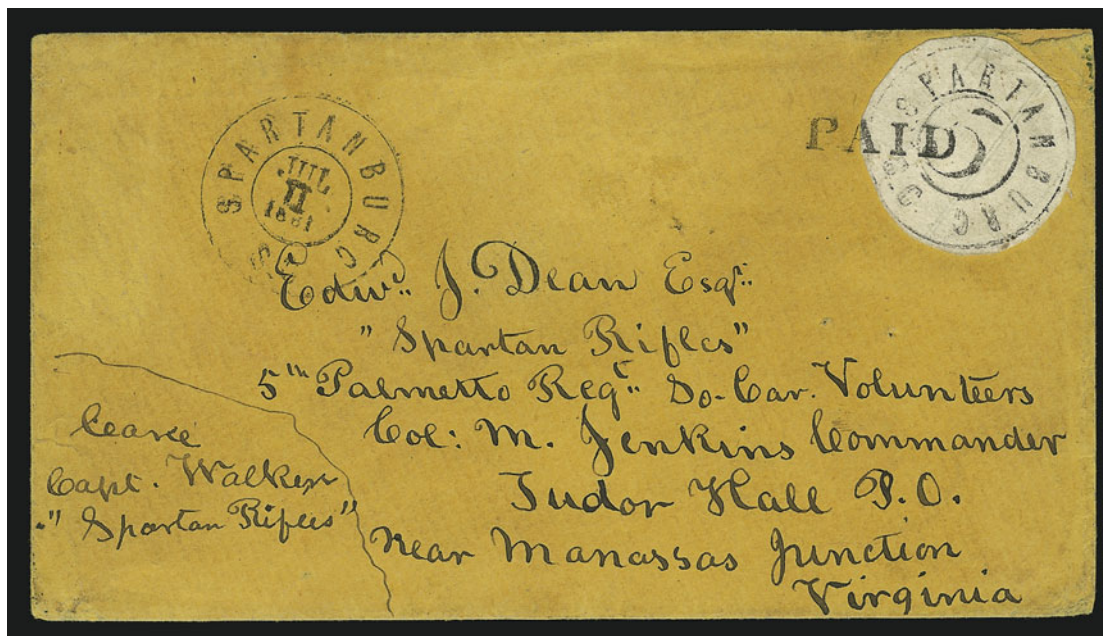 SPARTANBURG S.C.
JUL
11
1861
PAID
SPARTANBURG S.C.
Edwd. J. Dean Esqr.
"Spartan Rifles"
5th Palmetto Regt. So. Car. Volunteers
Col: M. Jenkins Commander
Tudor Hall P.O.
Near Manassas Junction
Virginia
Care
Capt. Walker
"Spartan Rifles"